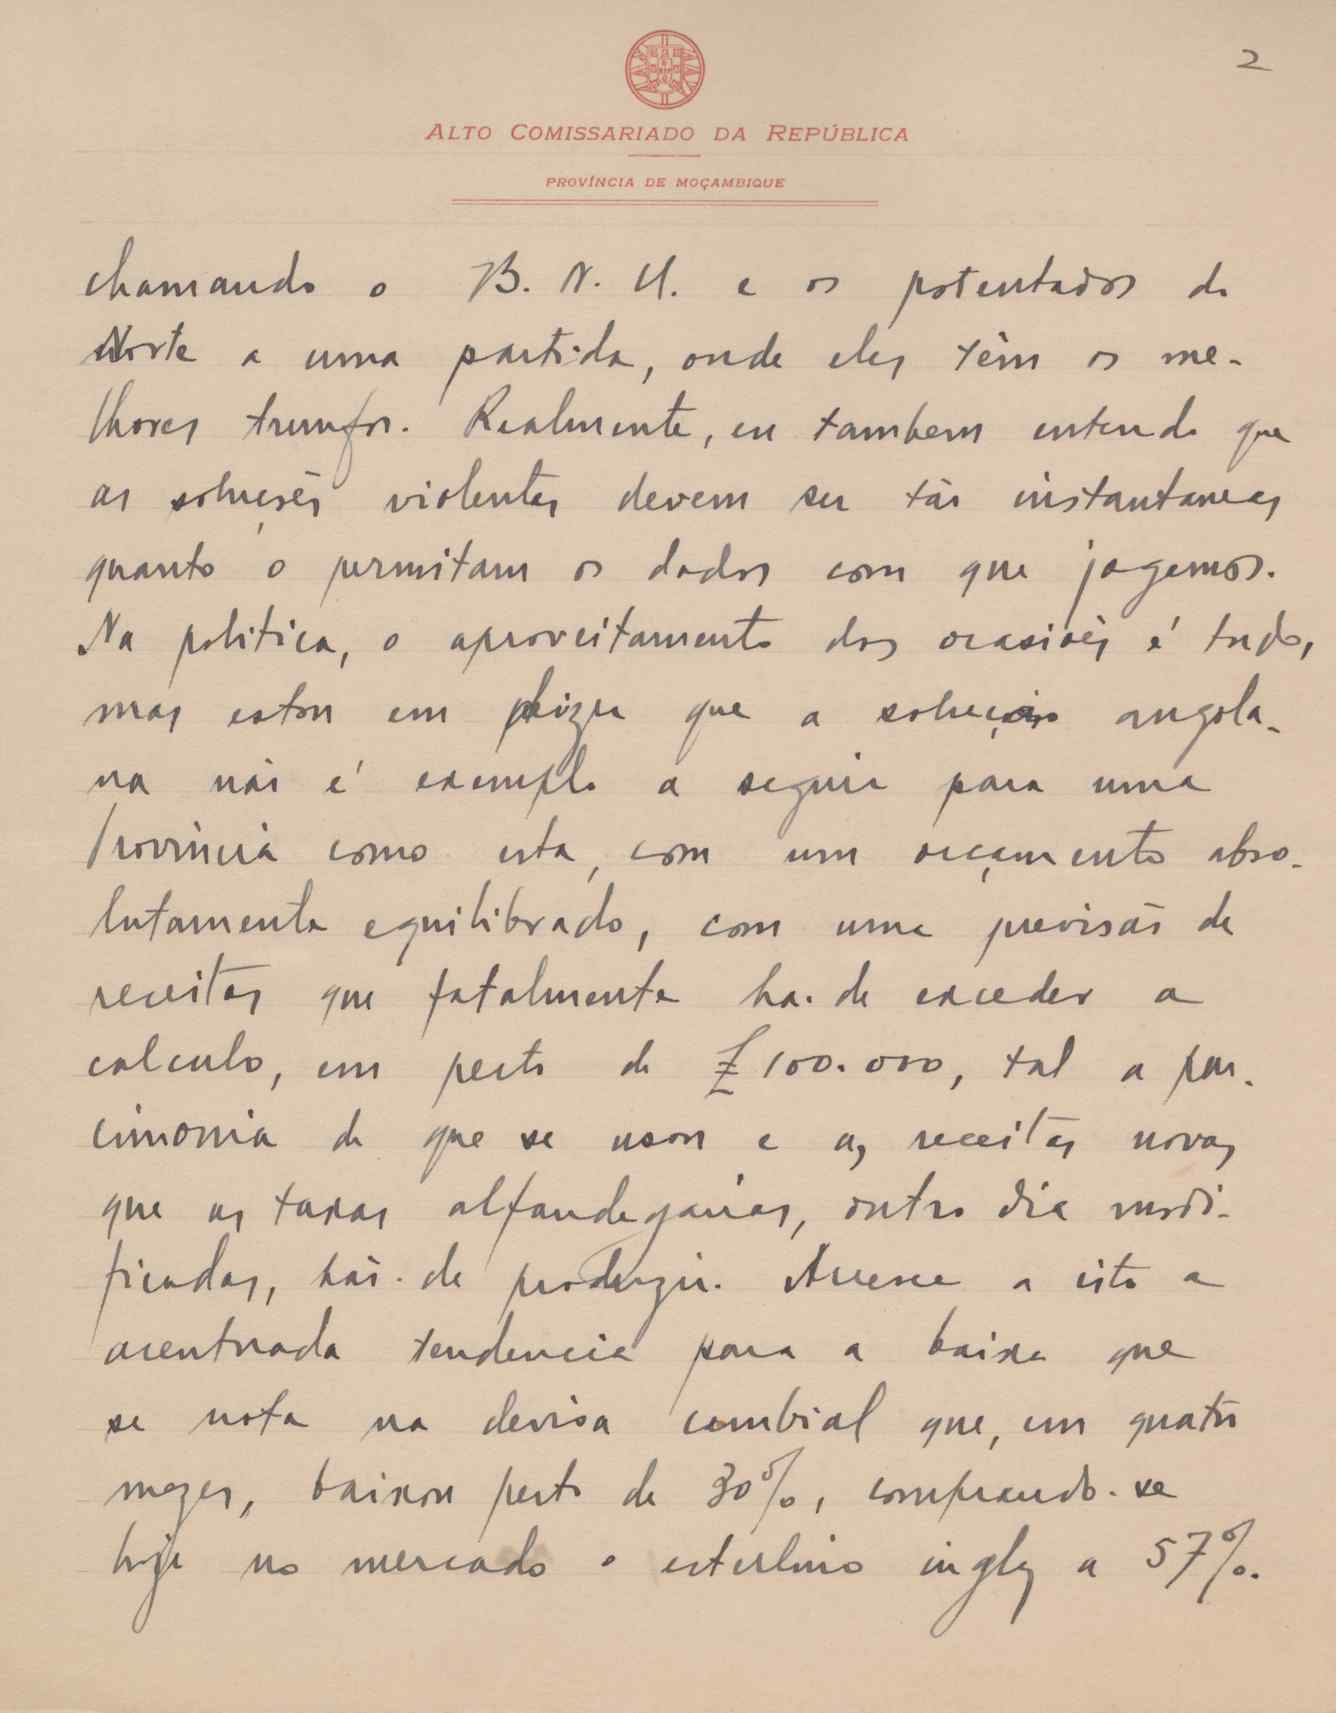 2
ALTO COMISSARIADO DA REPÚBLICA
PROVÍNCIA DE MOÇAMBIQUE
chamando o B. N. U. e os potentados do
Norte a uma partida, onde eles têm os me-
lhores trunfos. Realmente, eu tambem entendo que
as soluções violentas devem ser tão instantaneas
quanto o permitam os dados com que jogemos.
Na politica, o aproveitamento das ocasiões é tudo,
mas estou em dizer que a solução angola-
na não é exemplo a seguir para uma
Provincia como esta, com um orçamento abso-
lutamente equilibrado, com uma previsão de
receitas que fatalmente ha-de exceder a
calculo, em perto de £ 100.000, tal a par-
cimonia de que se usou e as receitas novas
que as taxas alfandegarias, outro dia modi-
ficadas, hão-de produzir. Acresce a isto a
acentuada tendencia para a baixa que
se nota na devisa cambial que, em quatro
mezes, baixou perto de 30%, comprando-se
hoje no mercado o esterlino inglez a 57%.